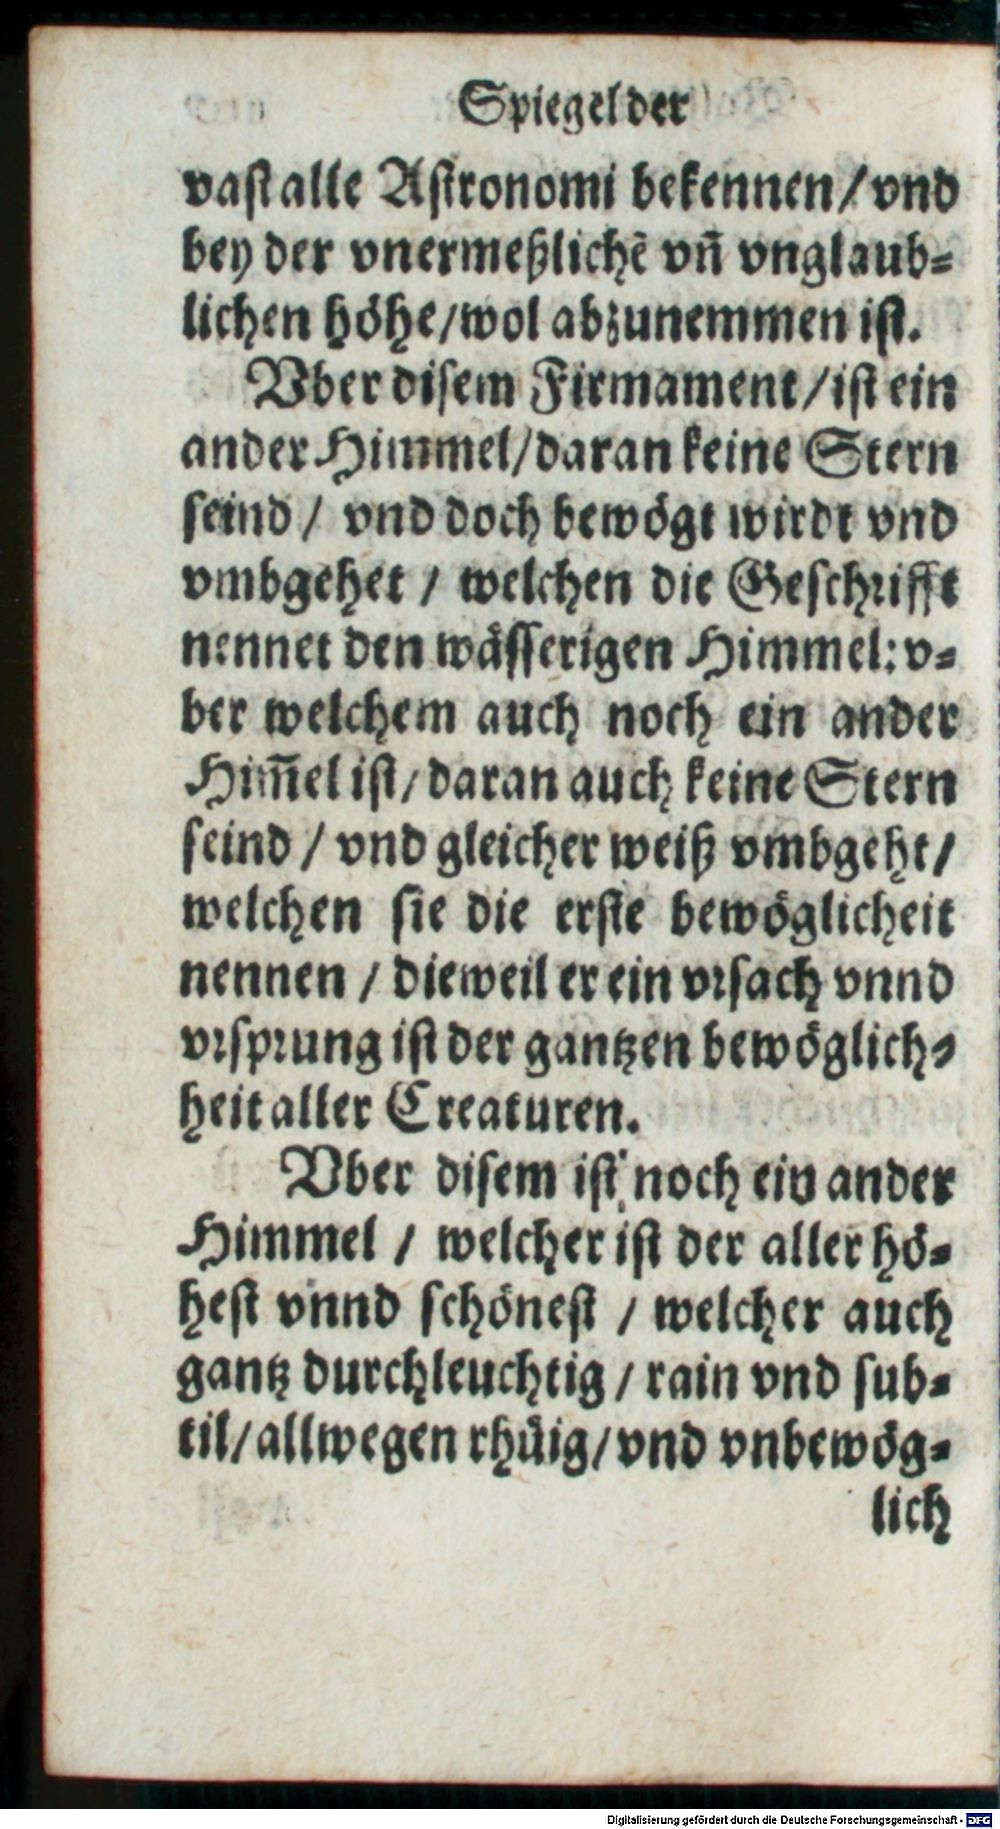 Spiegel der
vast alle Astronomi bekennen / vnd
bey der vnermeßlichẽ vñ vnglaub-
lichen höhe / wol abzunemmen ist.
Vber disem Firmament / ist ein
ander Himmel / daran keine Stern
seind / vnd doch bewögt wirdt vnd
vmbgehet / welchen die Geschrifft
nennet den wässerigen Himmel: v-
ber welchem auch noch ein ander
Him̃el ist / daran auch keine Stern
seind / vnd gleicher weiß vmbgeht /
welchen sie die erste bewöglicheit
nennen / dieweil er ein vrsach vnnd
vrsprung ist der gantzen bewöglich-
heit aller Creaturen.
Vber disem ist noch ein ander
Himmel / welcher ist der aller hö-
hest vnnd schönest / welcher auch
gantz durchleuchtig / rain vnd sub-
til / allwegen rhüig / vnd vnbewög-
lich
Digitalisierung gefördert durch die Deutsche Forschungsgemeinschaft - DFG